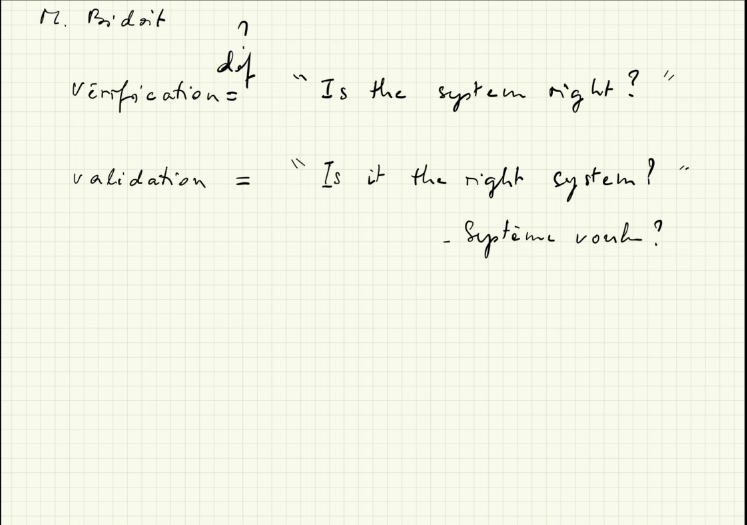 M. Bidoit
?
def
Vérification = "Is the system right?"
validation = "Is it the right system?"
- Système voulu?